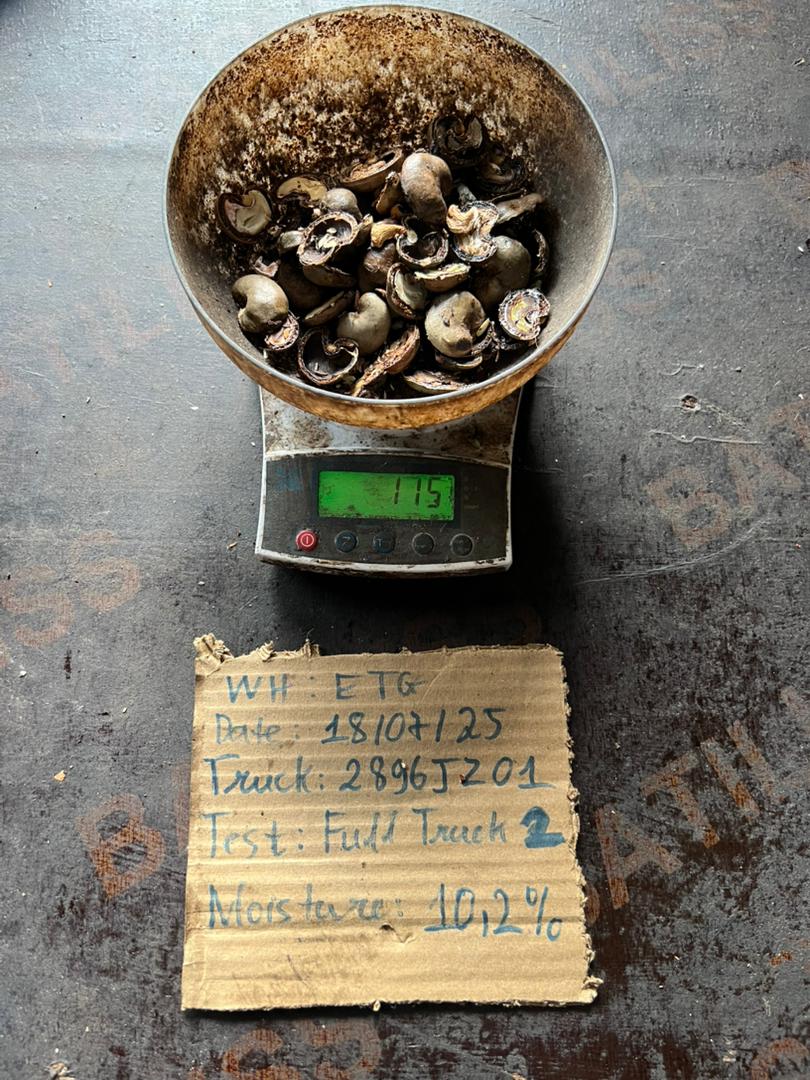 115
WH : ETG
Date : 18/07/25
Truck: 2896JZ01
Test : Full Truck 2
Moisture: 10,2%